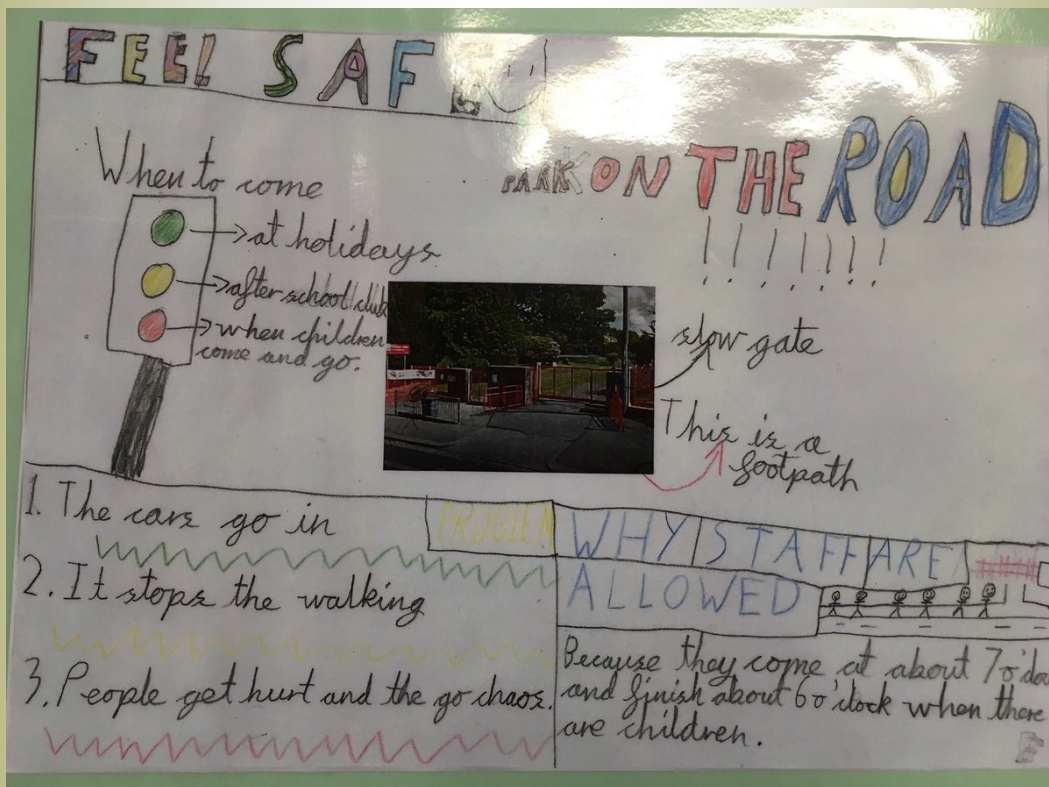 FEEL SAFE
PARK ON THE ROAD
!!!!!!!
When to come
at holidays
after school club
when children
come and go.
slow gate
This is a
footpath
1. The cars go in
2. It stops the walking
3. People get hurt and the go chaos.
PROBLEM
WHY STAFF ARE
ALLOWED
Because they come at about 7 o'
and finish about 6 o'clock when there
are children.